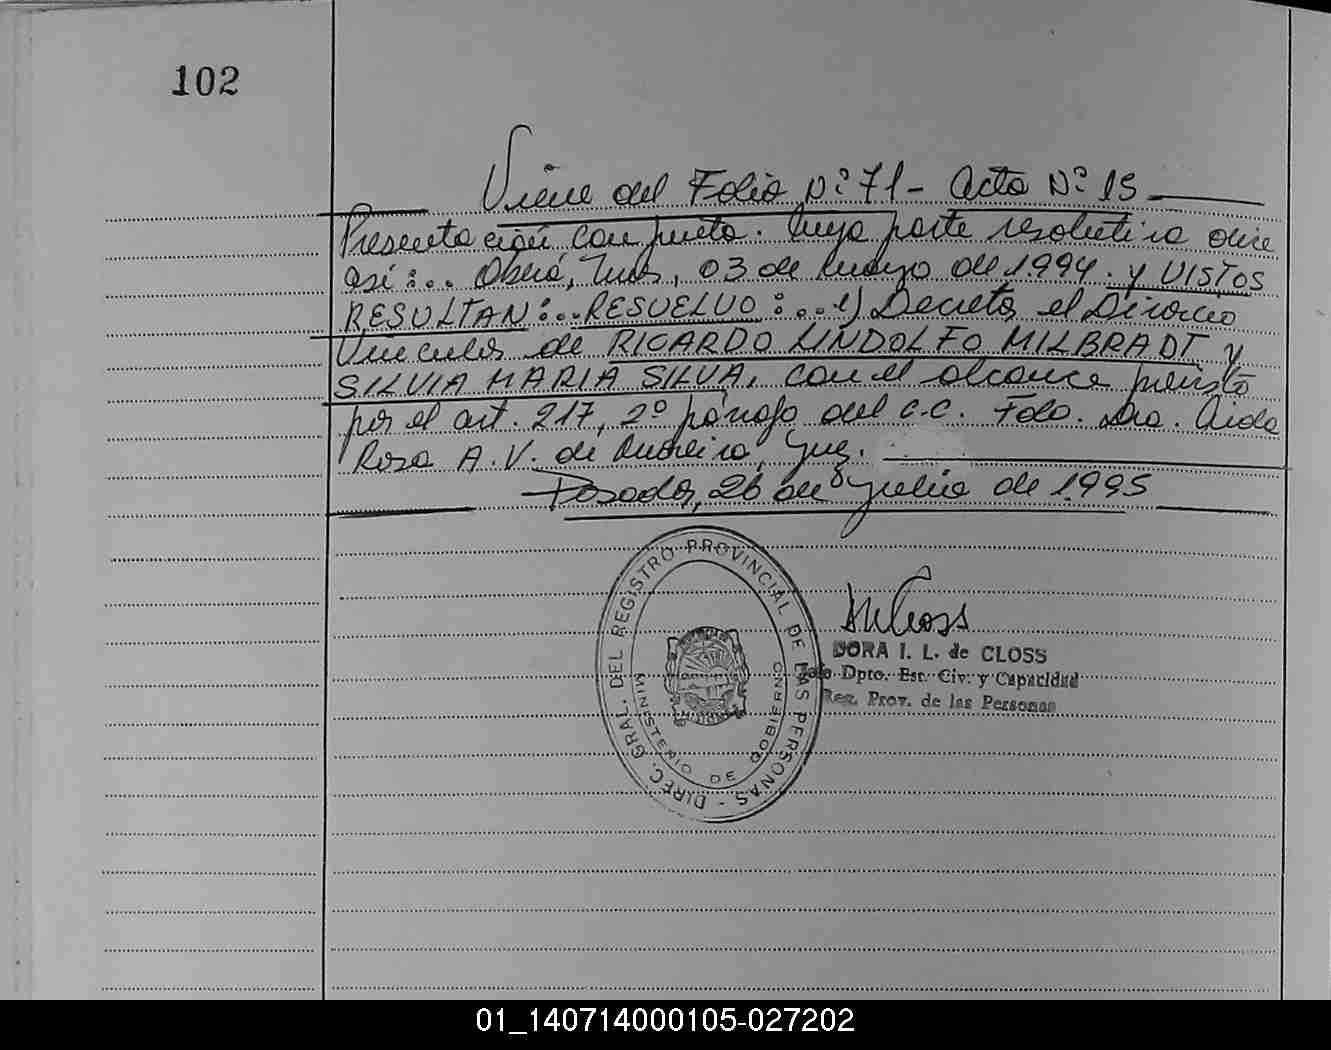 102
Viene del Folio Nº 71 - Acta Nº 15
Presentación conjunta. Cuya parte resolutiva dice
así:.. Oberá, Mnes, 03 de mayo de 1.994. y VISTOS
RESULTAN:..RESUELVO:..1) Decretar el Divorcio
Vincular de RICARDO LINDOLFO MILBRADT y
SILVIA MARIA SILVA, con el alcance previsto
por el art. 217, 2º párrafo del C.C. Fdo. Dra.
Rosa A. V. de Juez.
Posadas, 26 de julio de 1.995
DIREC. GRAL. DEL REGISTRO PROVINCIAL DE LAS PERSONAS -
MINISTERIO DE GOBIERNO
DORA I. L. de CLOSS
Jefe Dpto. Est. Civ. y Capacidad
Reg. Prov. de las Personas
01_140714000105-027202